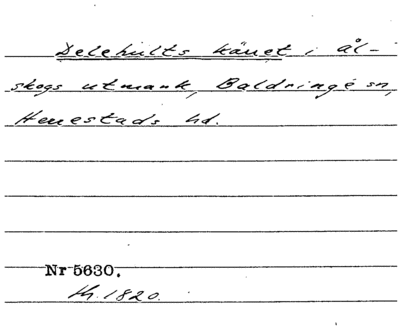 Delehults känet i ål-
skogs utmark, Baldringe sn,
Herrestads hd.
Nr 5630.
th. 1820.